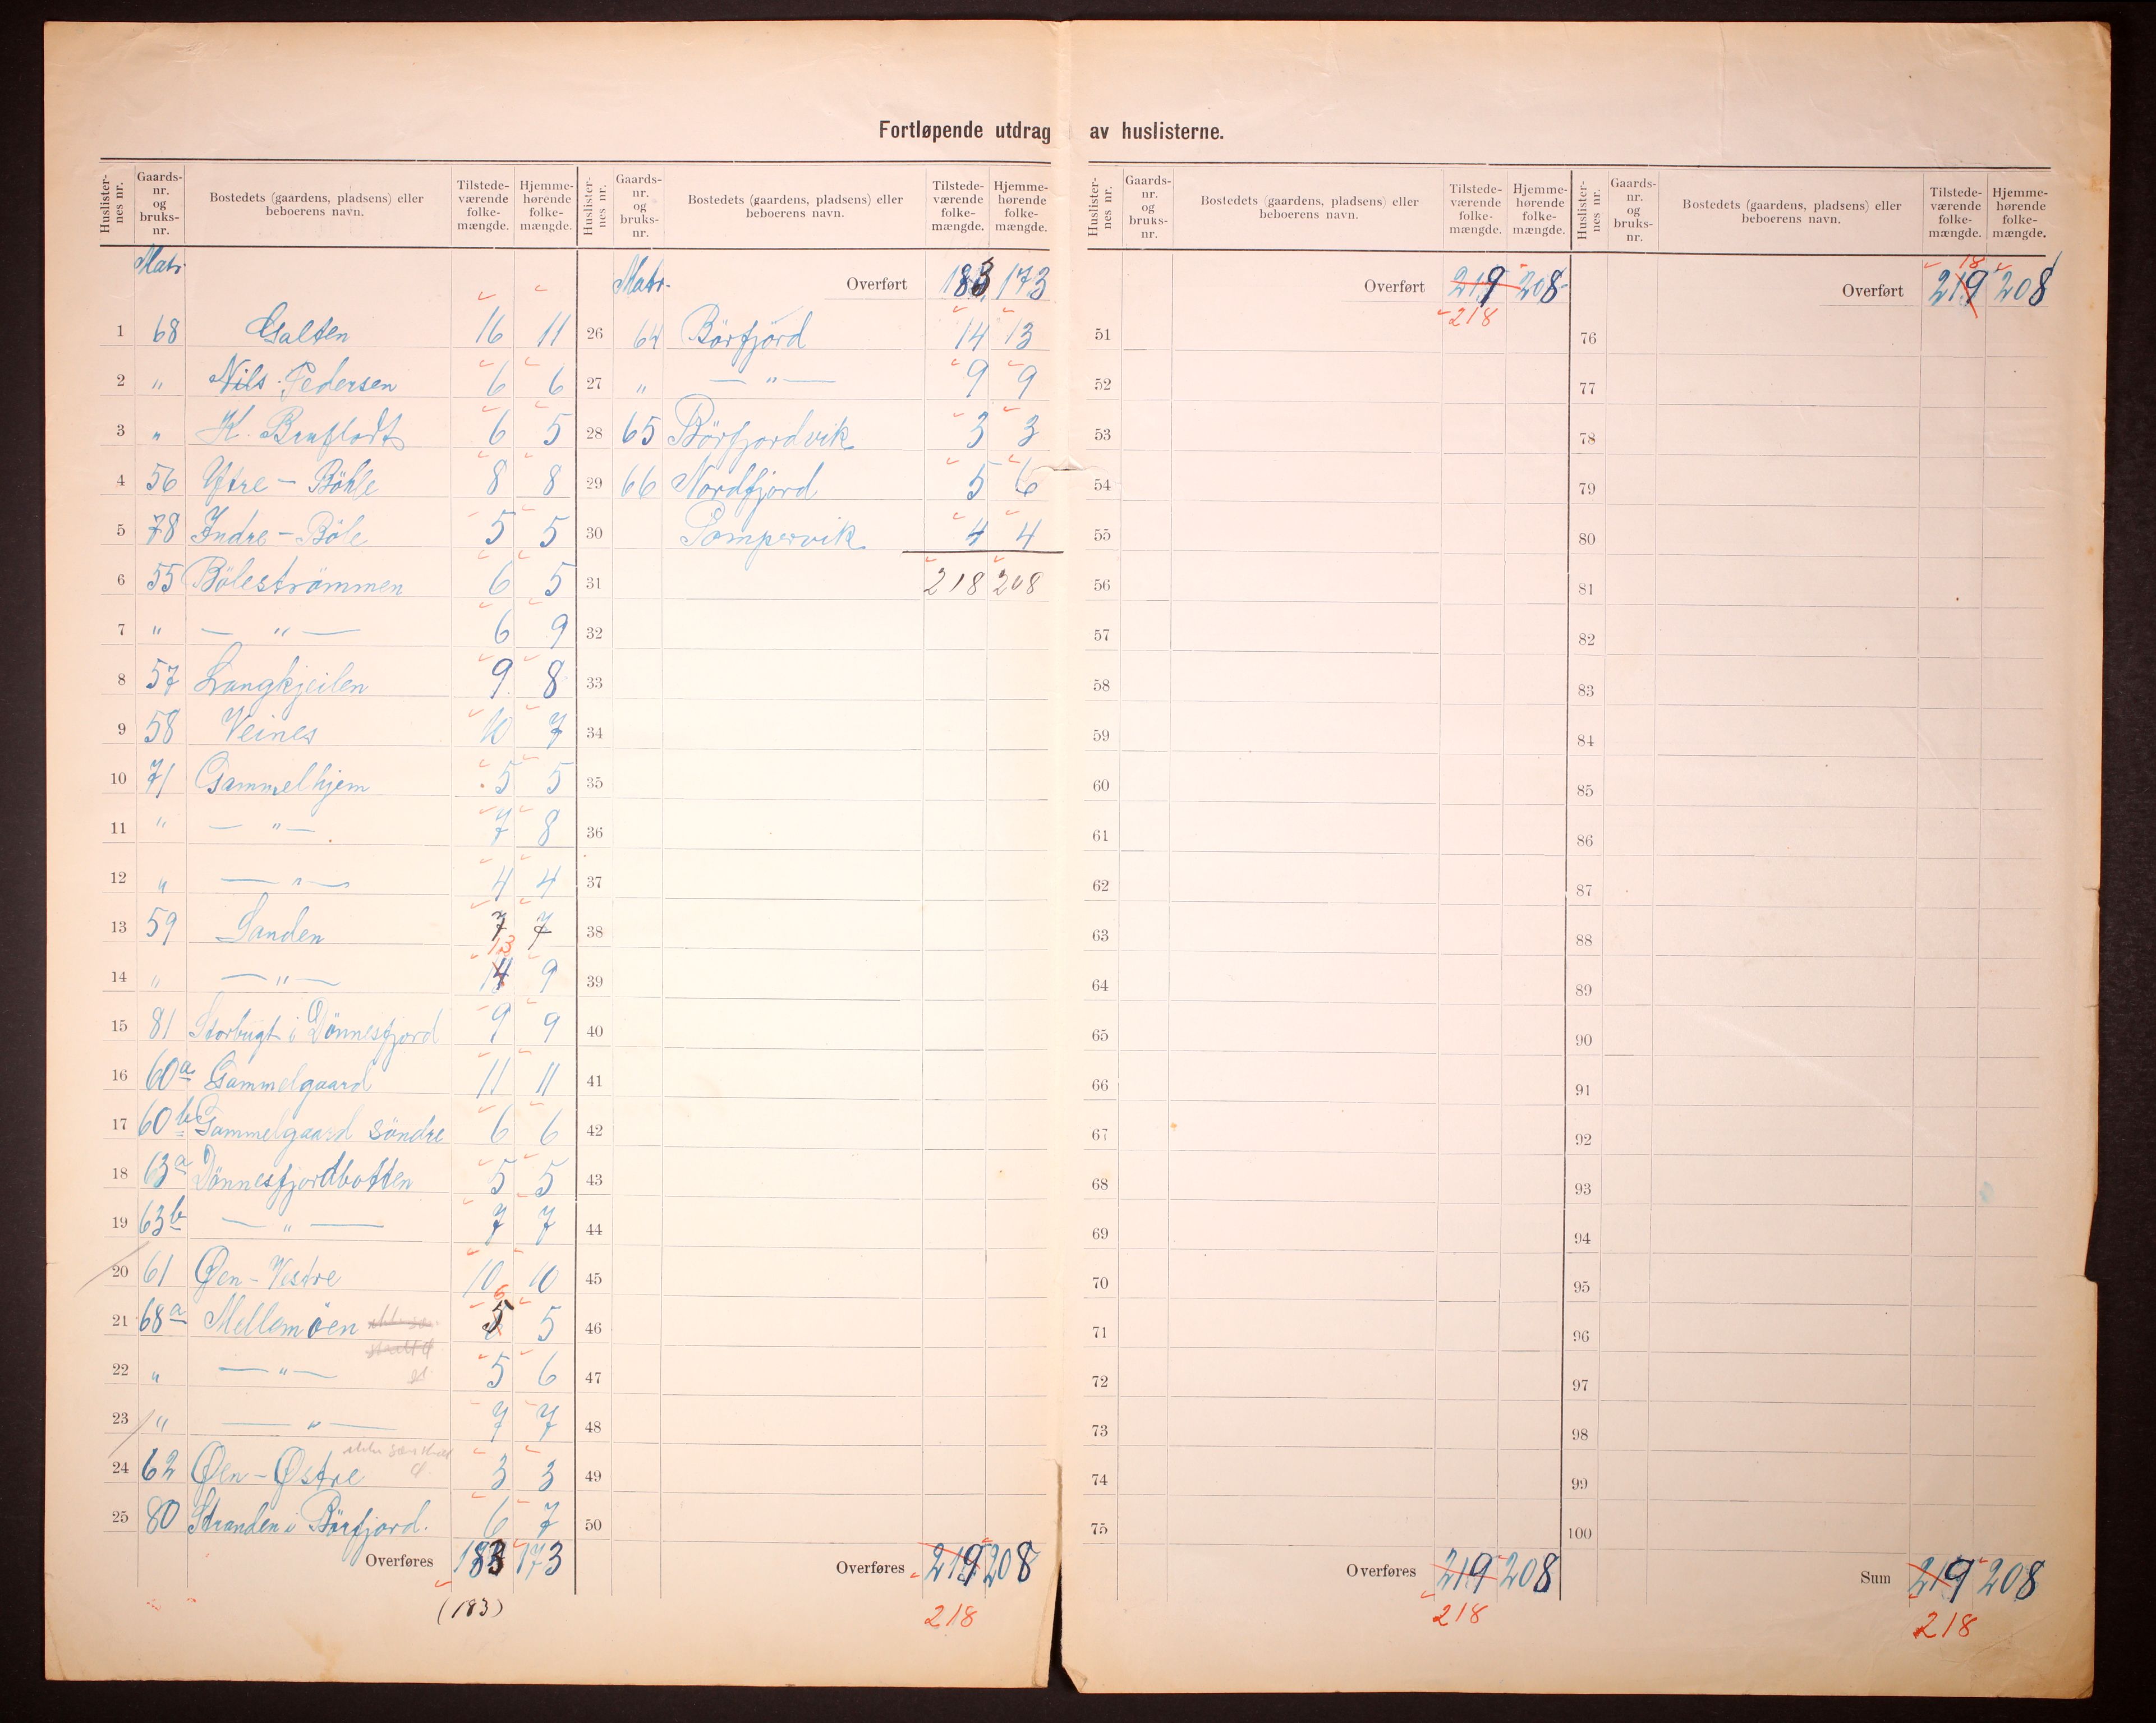 Fortløpende utdrag av huslisterne.
Huslisternes nr. Gaards-nr. og bruks-nr. Bostedets (gaardens, pladsens) eller beboerens navn. Tilstedeværende folkemængde. Hjemmehørende folkemængde.
Matr.
1 68 Galten 16 11
2 " Nils Pedersen 6 6
3 " K. 6 5
4 56 Ytre - Böhle 8 8
5 78 Indre - Böle 5 5
6 55 Bölestrømmen 6 5
7 " — " — 6 9
8 57 Langkjeilen 9 8
9 58 Veines 10 7
10 71 Gammelhjem 5 5
11 " — " — 7 8
12 " — " — 4 4
13 59 Sanden 7 7
13
14 " — " — 14 9
15 81 Storbugt i Dönnesfjord 9 9
16 60a Gammelgaard 11 11
17 60b Gammelgaard söndre 6 6
18 63a Dönnesfjordbotten 5 5
19 63b — " — 7 7
20 61 Øen - Vestre 10 10
6
21 68a Mellemöen 5 5
22 " — " — 5 6
23 " — " — 7 7
24 62 Øen - Østre 3 3
25 80 Stranden i Börfjord. 6 7
Overføres 183 173
(183)
Huslisternes nr. Gaards-nr. og bruks-nr. Bostedets (gaardens, pladsens) eller beboerens navn. Tilstedeværende folkemængde. Hjemmehørende folkemængde.
Matr. Overført 183 173
26 64 Börfjörd 14 13
27 " — " — 9 9
28 65 Börfjordvik 3 3
29 66 Nordfjord 5 6
30 Pompervik 4 4
31 218 208
32
33
34
35
36
37
38
39
40
41
42
43
44
45
46
47
48
49
50
Overføres 219 208
218
Huslisternes nr. Gaards-nr. og bruks-nr. Bostedets (gaardens, pladsens) eller beboerens navn. Tilstedeværende folkemængde. Hjemmehørende folkemængde.
Overført 219 208
218
51
52
53
54
55
56
57
58
59
60
61
62
63
64
65
66
67
68
69
70
71
72
73
74
75
Overføres 219 208
218
Huslisternes nr. Gaards-nr. og bruks-nr. Bostedets (gaardens, pladsens) eller beboerens navn. Tilstedeværende folkemængde. Hjemmehørende folkemængde.
18
Overført 219 208
76
77
78
79
80
81
82
83
84
85
86
87
88
89
90
91
92
93
94
95
96
97
98
99
100
Sum 219 208
218